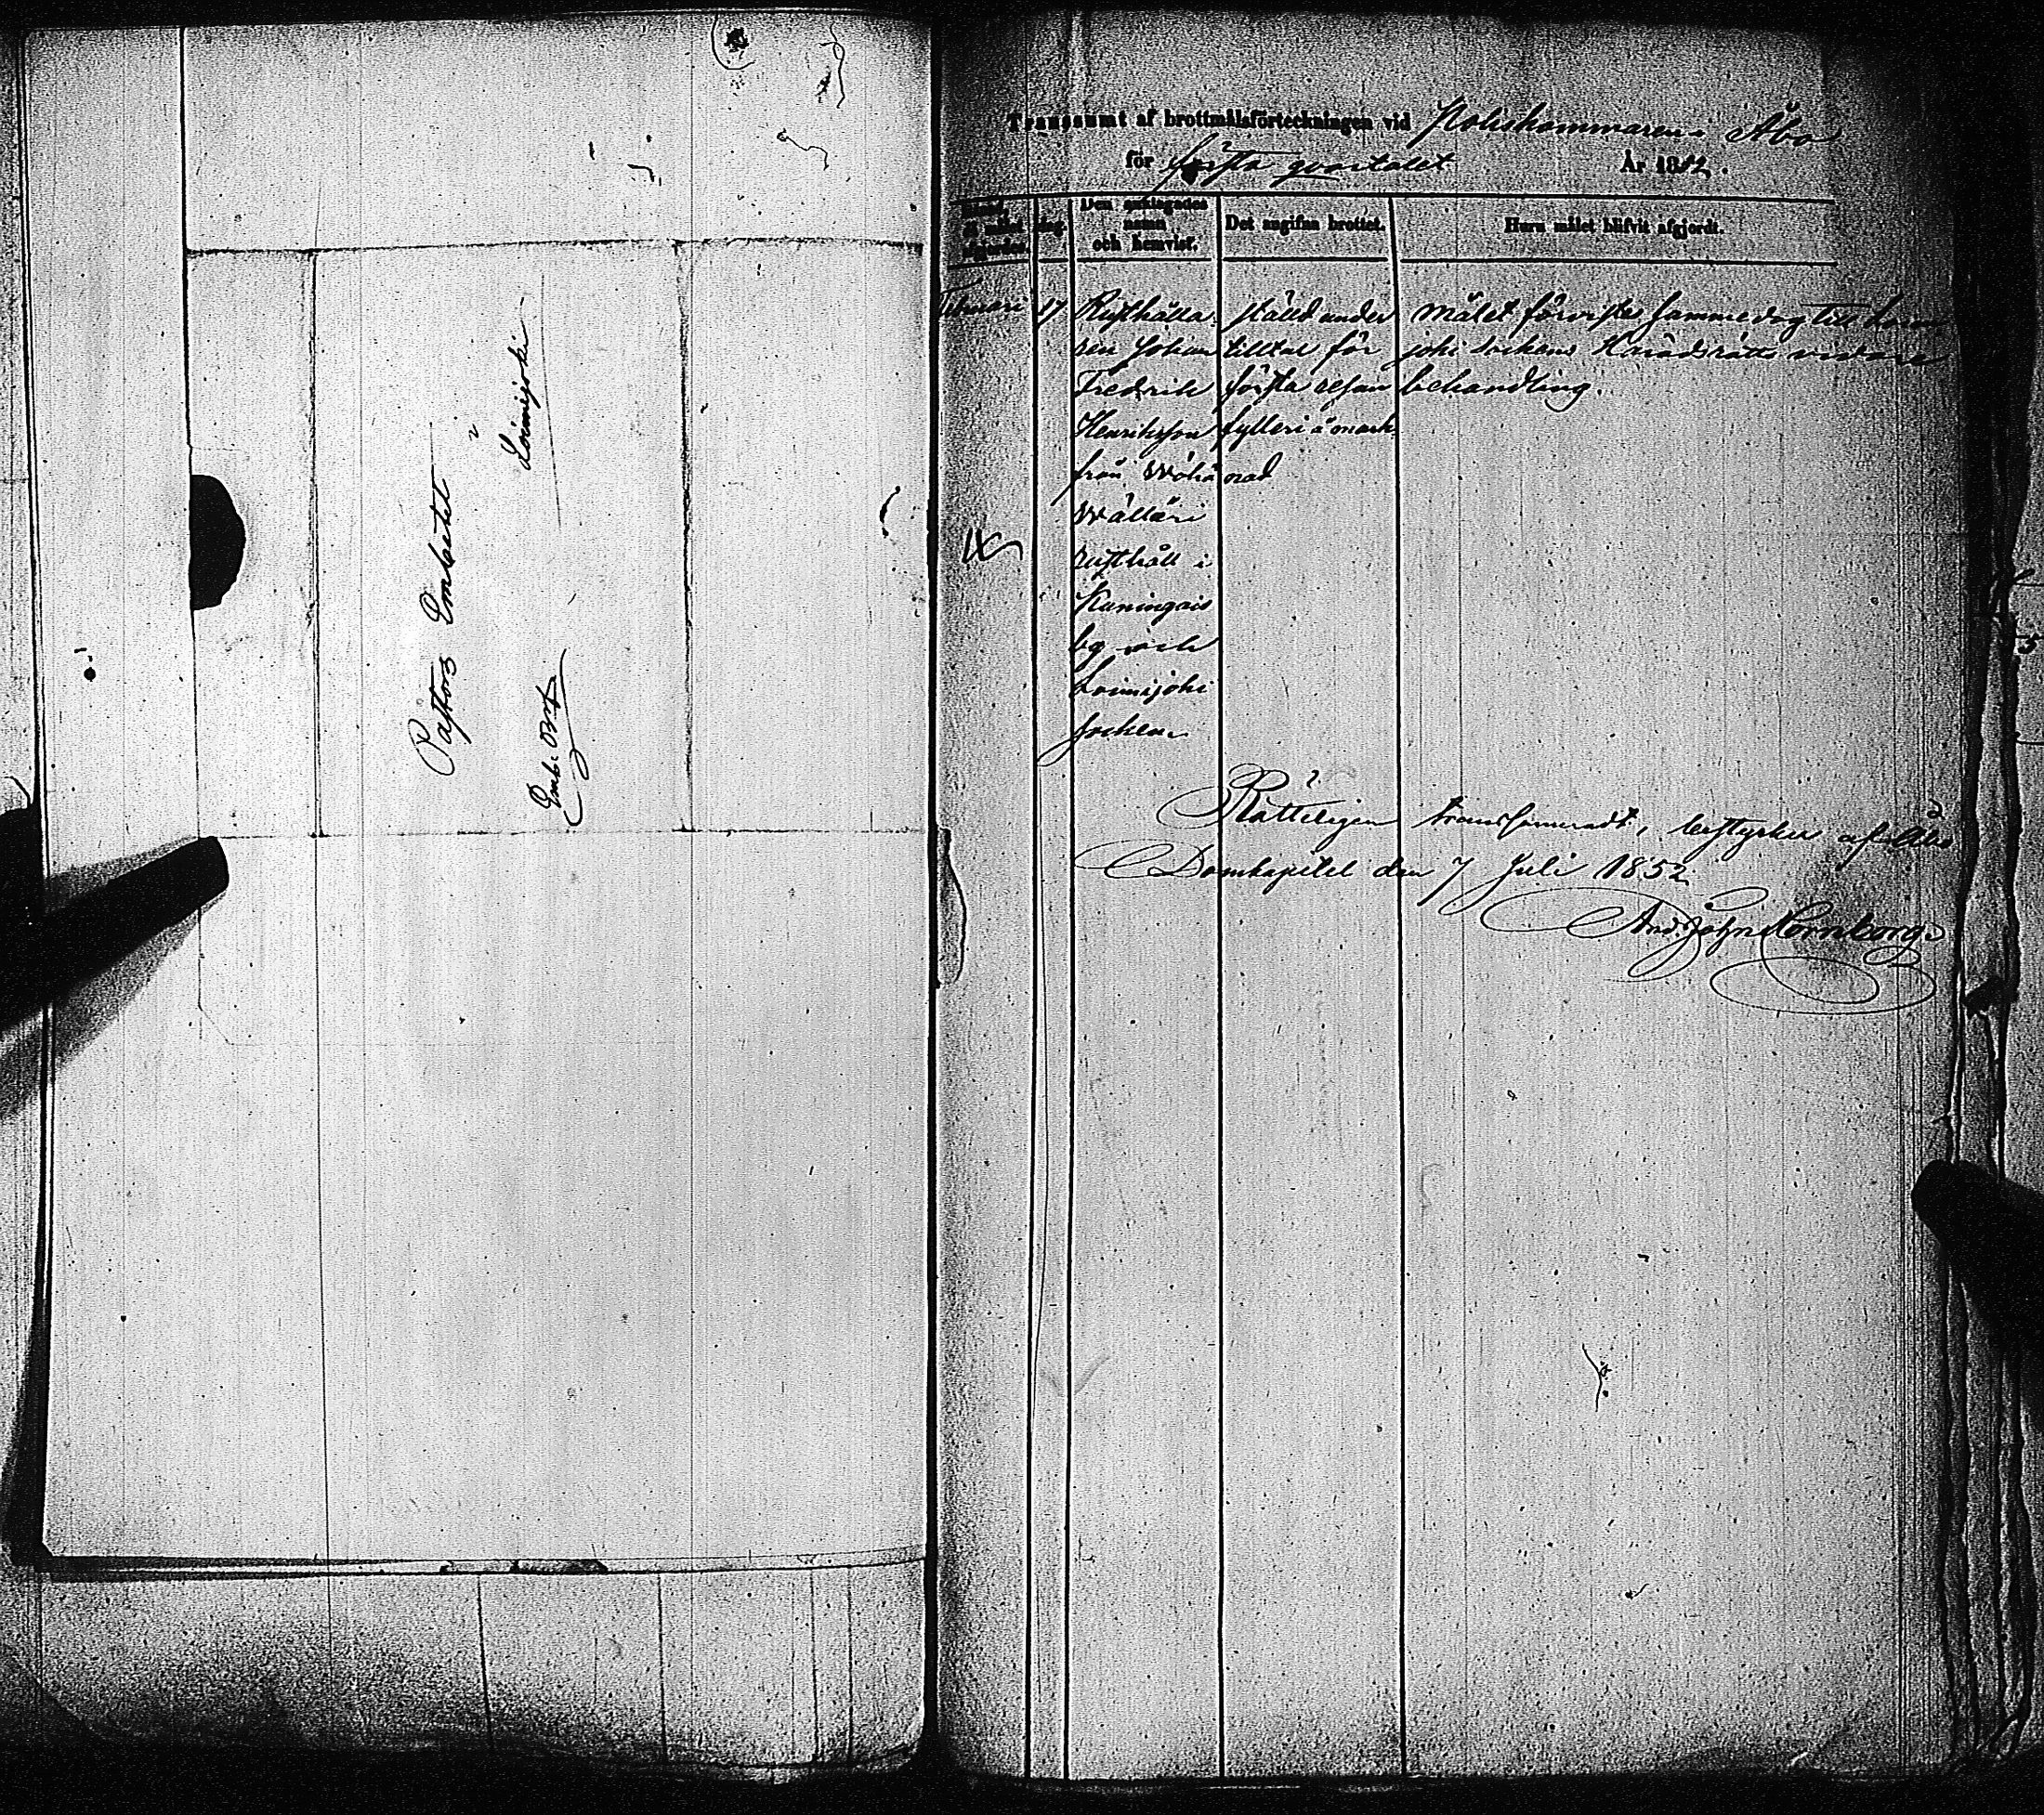 Pastors Embetet
i
Loimijoki
Emb: Bref
Transsumt af brottmålsförteckningen vid Poliskammaren i Åbo
för första qvartalet År 1852.
Månad
då målet dag.
afgjordes.
Den anklagades
namn
och hemvist.
Det angifna brottet.
Huru målet blifvit afgjordt.
Februari 17 Rusthålla- ställd under Målet förvistes samma dag till Loimi
ren Johan tilltal för joki Sockens Häradsrätts vidare
Fredrik första resan behandling.
Henriksson fylleri å mark-
från nad
rusthåll i
Kuningais
by och
Loimijoki
Socken.
Rätteligen transsumeradt, bestyrkes af Åbo
Domkapitel den 7 Juli 1852.
And. John Hornborg.